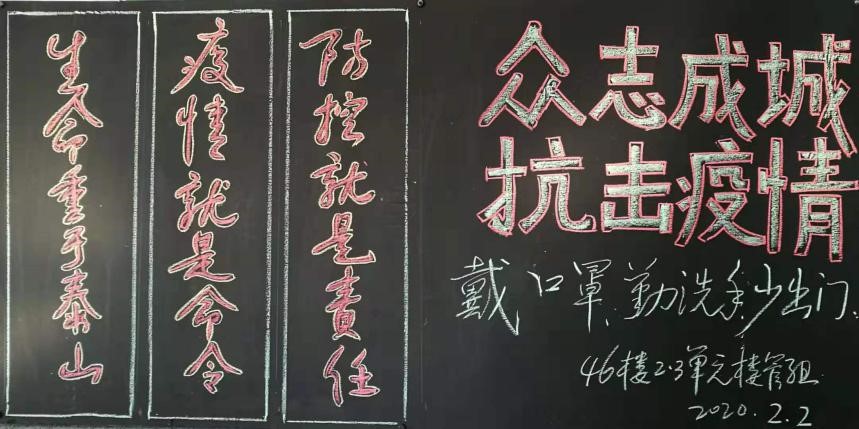 生命重于泰山
疫情就是命令
防控就是责任
众志成城
抗击疫情
戴口罩、勤洗手少出门
46楼2.3单元楼管组
2020.2.2